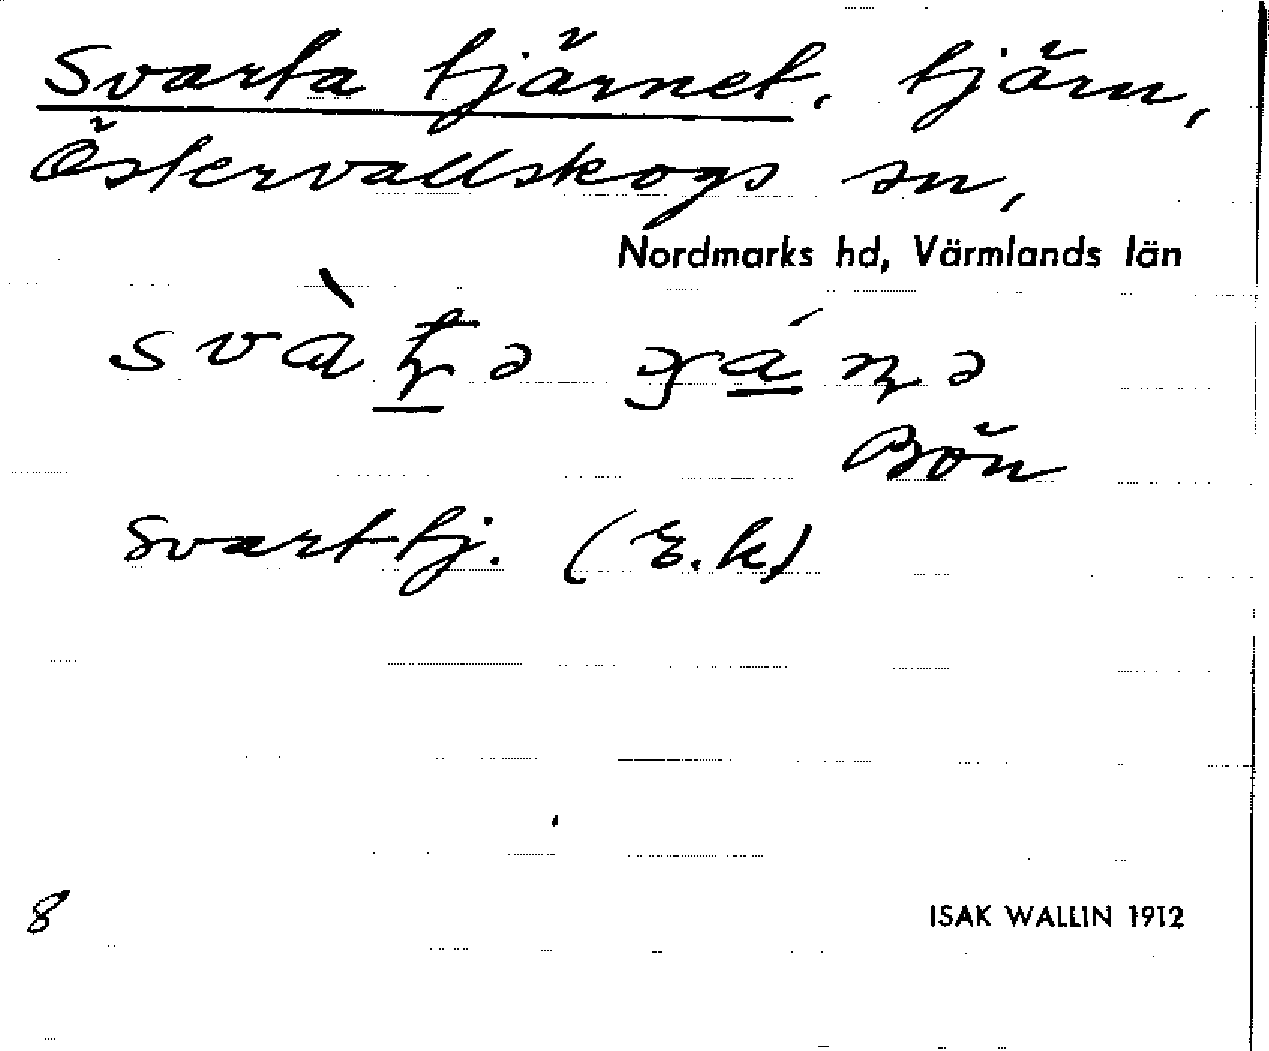 Svarta tjärnet. tjärn,
Östervallskogs sn,
Nordmarks hd, Värmlands län
Bön
Svarttj. (E.k)
8
ISAK WALLIN 1912